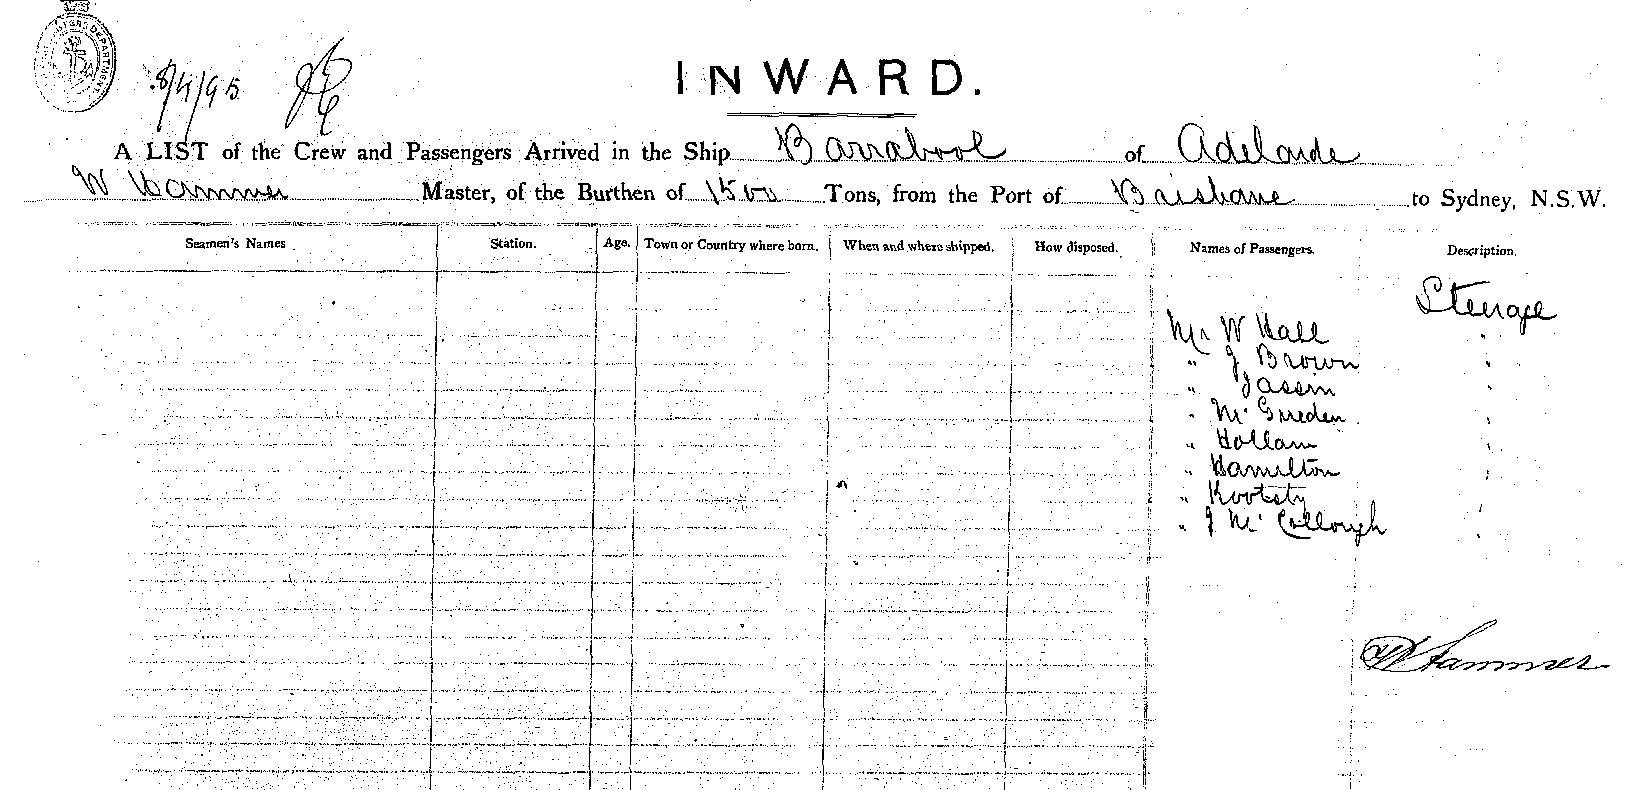 8/4/95
INWARD.
A LIST of the Crew and Passengers Arrived in the Ship Barrabool of Adelaide
W Hammer Master, of the Burthen of 1500 Tons, from the Port of Brisbane to Sydney, N.S.W.
Seamen's Names Station. Age. Town or Country where born. When and where shipped. How disposed. Names of Passengers. Description.
Steerage
Mr W Hall "
" J Brown "
" Jassin "
" "
" Hollam "
" Hamilton "
" "
" J McCollough "
W Hammer